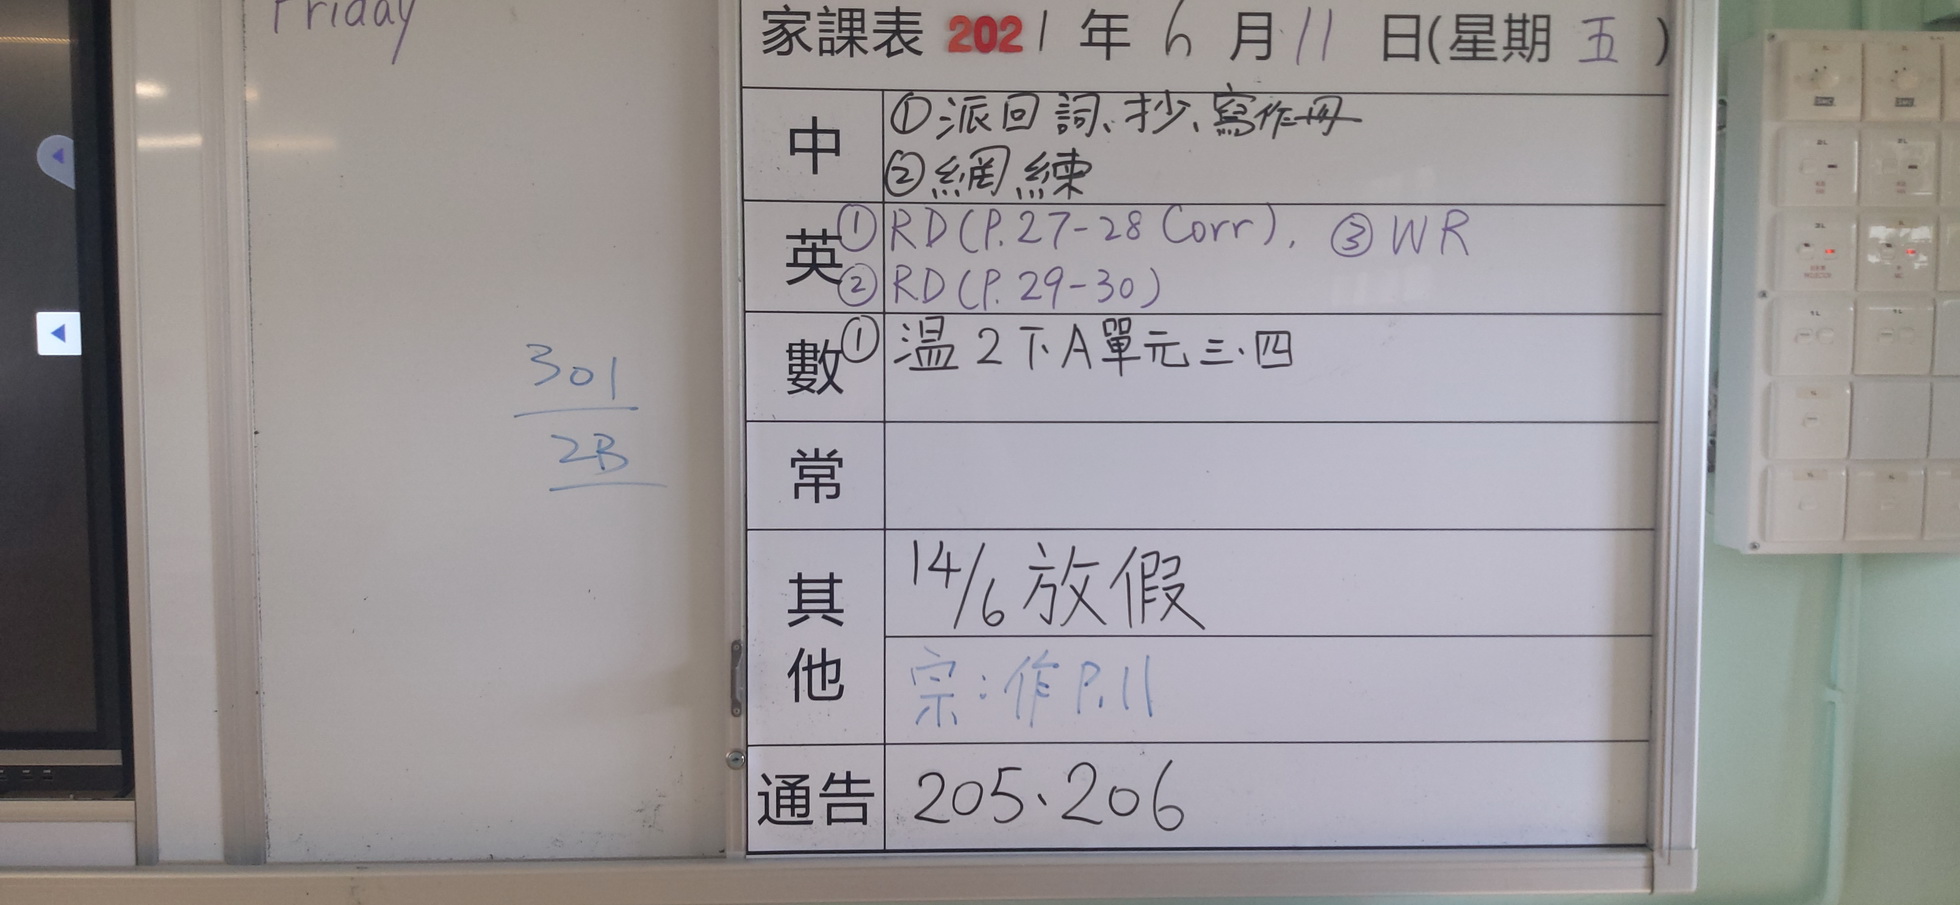 Friday
301
2B
家課表 2021 年 6 月 11 日(星期 五 )
中
①派回詞、抄、寫作冊
②網練
英
①RD(P.27-28 Corr). ③WR
②RD(P.29-30)
數
①温2下A單元三.四
常
其他
14/6放假
宗:作P.11
通告
205、206